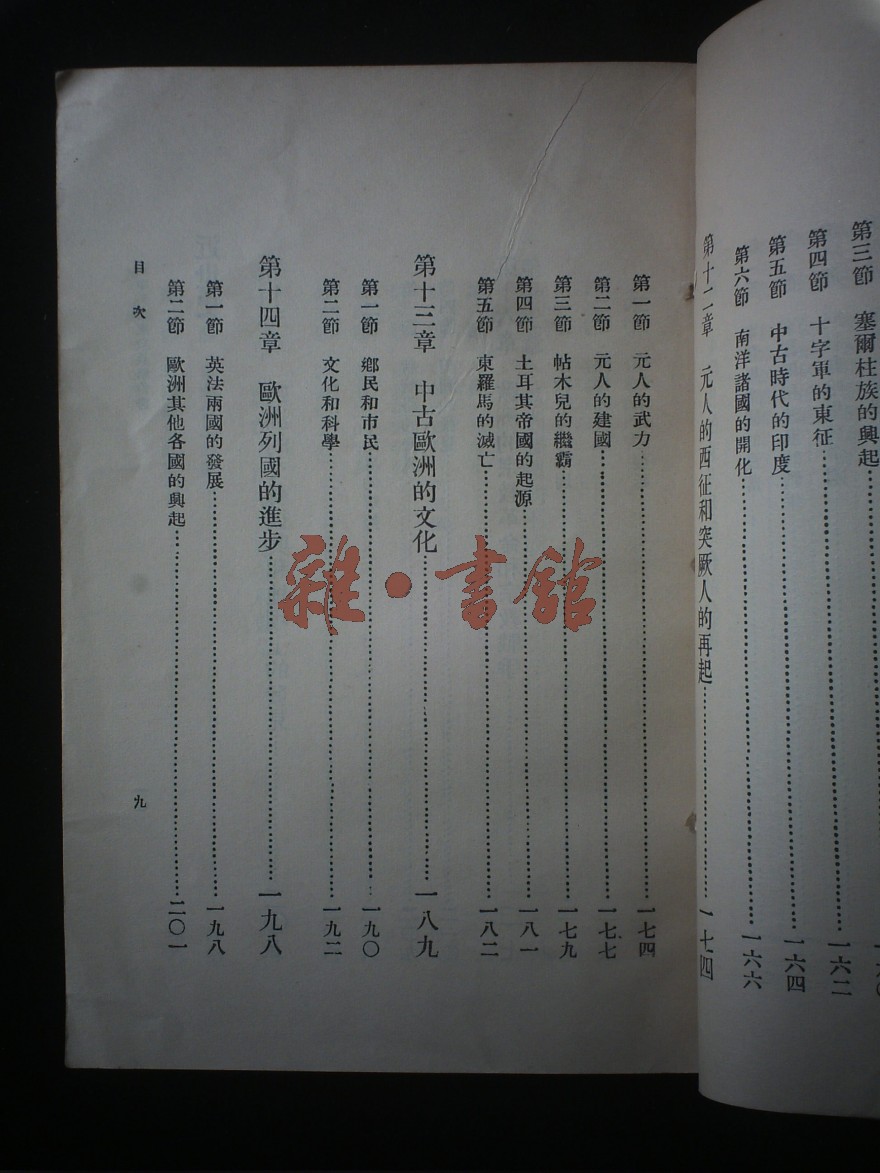 第三節　塞爾柱族的興起
第四節　十字軍的東征……一六二
第五節　中古時代的印度……一六四
第六節　南洋諸國的開化……一六六
第十二章　元人的西征和突厥人的再起……一七四
第一節　元人的武力……一七四
第二節　元人的建國……一七七
第三節　帖木兒的繼霸……一七九
第四節　土耳其帝國的起源……一八一
第五節　東羅馬的滅亡……一八二
第十三章　中古歐洲的文化……一八九
第一節　鄉民和市民……一九〇
第二節　文化和科學……一九二
第十四章　歐洲列國的進步……一九八
第一節　英法兩國的發展……一九八
第二節　歐洲其他各國的興起……二〇一
目次
九
雜·書館